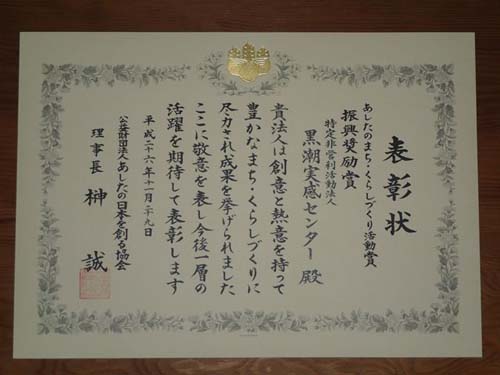 表彰状
あしたのまち・くらしづくり活動賞
振興奨励賞
特定非営利活動法人
黒潮実感センター 殿
貴法人は創意と熱意を持って
豊かなまち・くらしづくりに
尽力され成果を挙げられました
ここに敬意を表し今後一層の
活躍を期待して表彰します
平成二十六年十一月二十九日
公益財団法人あしたの日本を創る協会
理事長 榊 誠